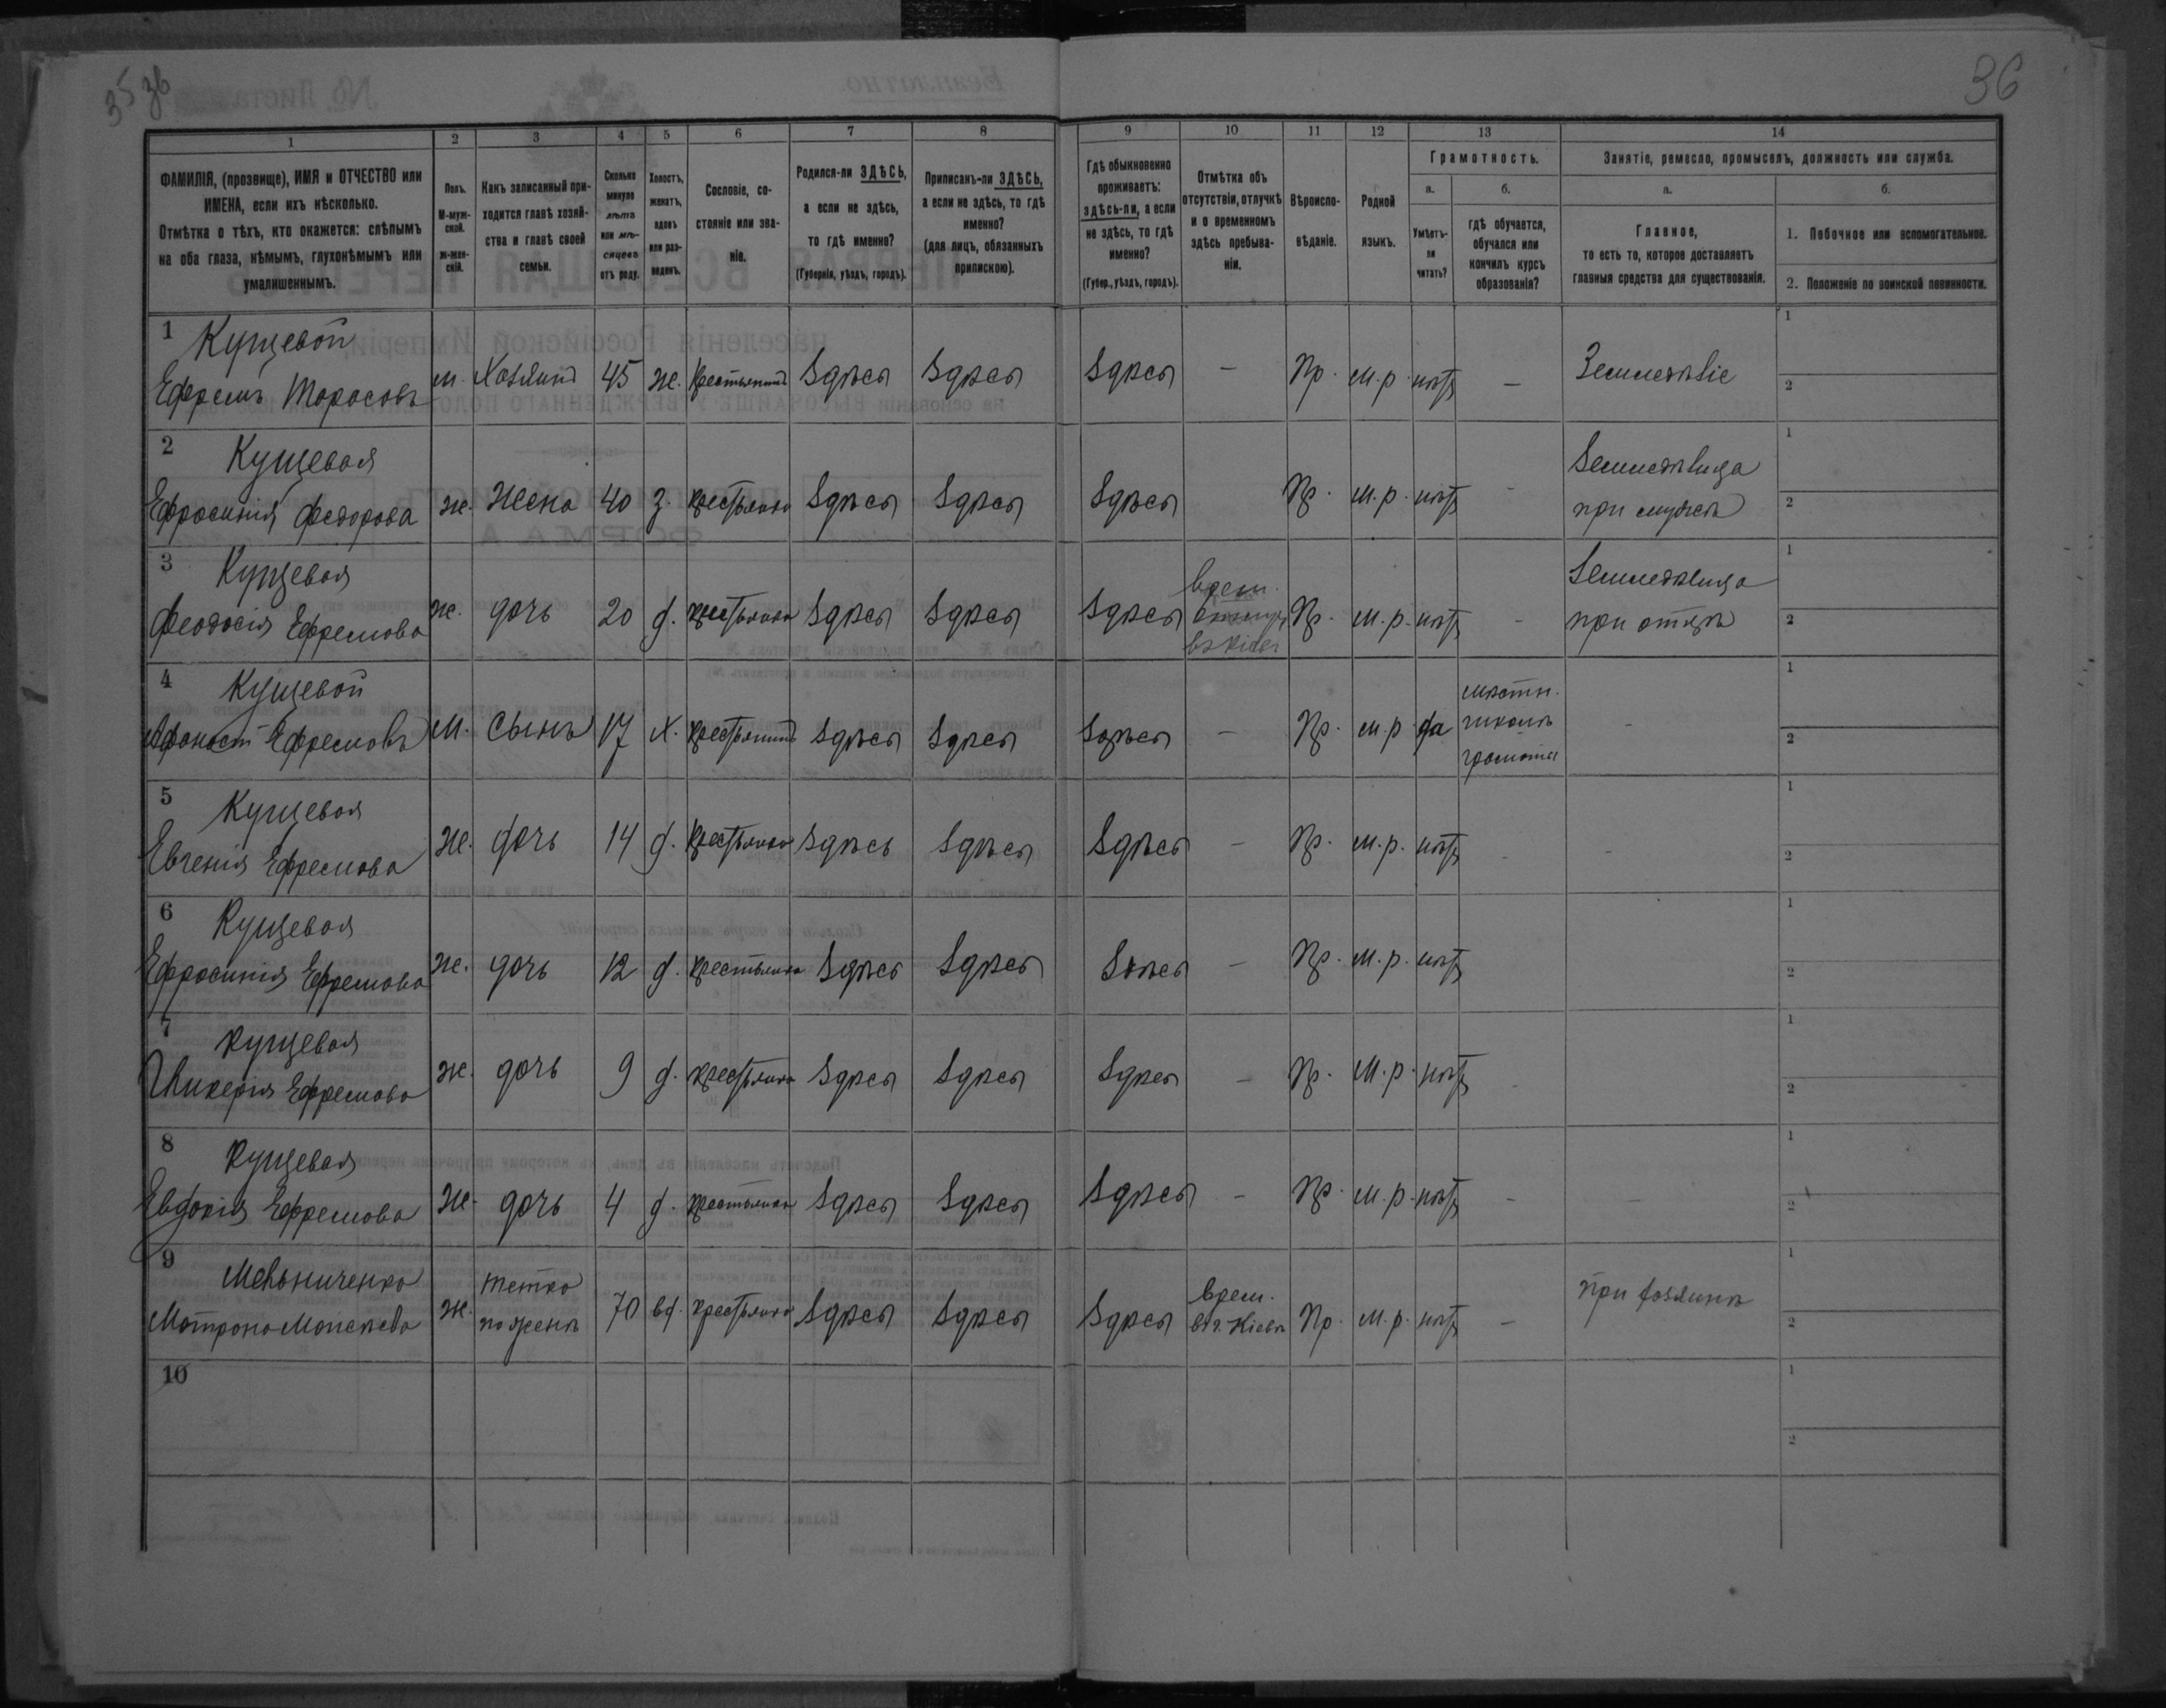 35 зв
36
1 2 3 4 5 6 7 8 9 10 11 12 13 14
ФАМИЛІЯ, (прозвище), ИМЯ и ОТЧЕСТВО или
ИМЕНА, если ихъ нѣсколько.
Отмѣтка о тѣхъ, кто окажется: слѣпымъ
на оба глаза, нѣмымъ, глухонѣмымъ или
умалишеннымъ.
Полъ.
М-муж-
ской.
ж-жен-
скій.
Какъ записанный при-
ходится главѣ хозяй-
ства и главѣ своей
семьи.
Сколько
минуло
лѣтъ
или мѣ-
сяцевъ
отъ роду.
Холостъ,
женатъ,
вдовъ
или раз-
веденъ.
Сословіе, со-
стояніе или зва-
ніе.
Родился-ли ЗДѢСЬ,
а если не здѣсь,
то гдѣ именно?
(Губернія, уѣздъ, городъ).
Приписанъ-ли ЗДѢСЬ,
а если не здѣсь, то гдѣ
именно?
(для лицъ, обязанныхъ
припискою).
Гдѣ обыкновенно
проживаетъ:
здѣсь-ли, а если
не здѣсь, то гдѣ
именно?
(Губер., уѣздъ, городъ).
Отмѣтка объ
отсутствіи, отлучкѣ
и о временномъ
здѣсь пребыва-
ніи.
Вѣроиспо-
вѣданіе.
Родной
языкъ.
Грамотность.
а.
Умѣетъ-
ли
читать?
б.
гдѣ обучается,
обучался или
кончилъ курсъ
образованія?
Занятіе, ремесло, промыселъ, должность или служба.
а.
Главное,
то есть то, которое доставляетъ
главныя средства для существованія.
б.
1. Побочное или вспомогательное.
2. Положеніе по воинской повинности.
1 Кущевой
Ефремъ Торосовъ м. Хозяинъ 45 ж. Крестьянинъ Здѣсь Здѣсь Здѣсь – Пр. м.р. нѣтъ – Земледѣліе 1 2
2 Кущевая
Ефросинія Федорова ж. Жена 40 з. крестьянка Здѣсь Здѣсь Здѣсь Пр. м.р. нѣтъ – Земледѣлица
при мужѣ 1 2
3 Кущевая
Феодосія Ефремова ж. дочь 20 д. крестьянка Здѣсь Здѣсь Здѣсь врем.
въ Кіевѣ Пр. м.р. нѣтъ – Земледѣлица
при отцѣ 1 2
4 Кущевой
Афонасій Ефремовъ м. сынъ 17 х. крестьянинъ Здѣсь Здѣсь Здѣсь – Пр. м.р. да
школѣ
грамоты – 1 2
5 Кущевая
Евгенія Ефремова ж. дочь 14 д. крестьянка Здѣсь Здѣсь Здѣсь – Пр. м.р. нѣтъ - - 1 2
6 Кущевая
Ефросинія Ефремова ж. дочь 12 д. крестьянка Здѣсь Здѣсь Здѣсь – Пр. м.р. нѣтъ 1 2
7 Кущевая
Гликерія Ефремова ж. дочь 9 д. крестьянка Здѣсь Здѣсь Здѣсь – Пр. м.р. нѣтъ - 1 2
8 Кущевая
Евдокія Ефремова ж. дочь 4 д. крестьянка Здѣсь Здѣсь Здѣсь – Пр. м.р. нѣтъ - - 1 2
9 Мельниченко
Матрона Моисѣева ж. тетка
по женѣ 70 вд. крестьянка Здѣсь Здѣсь Здѣсь врем.
въ г. Кіевѣ Пр. м.р. нѣтъ – при хозяинѣ 1 2
10 1 2